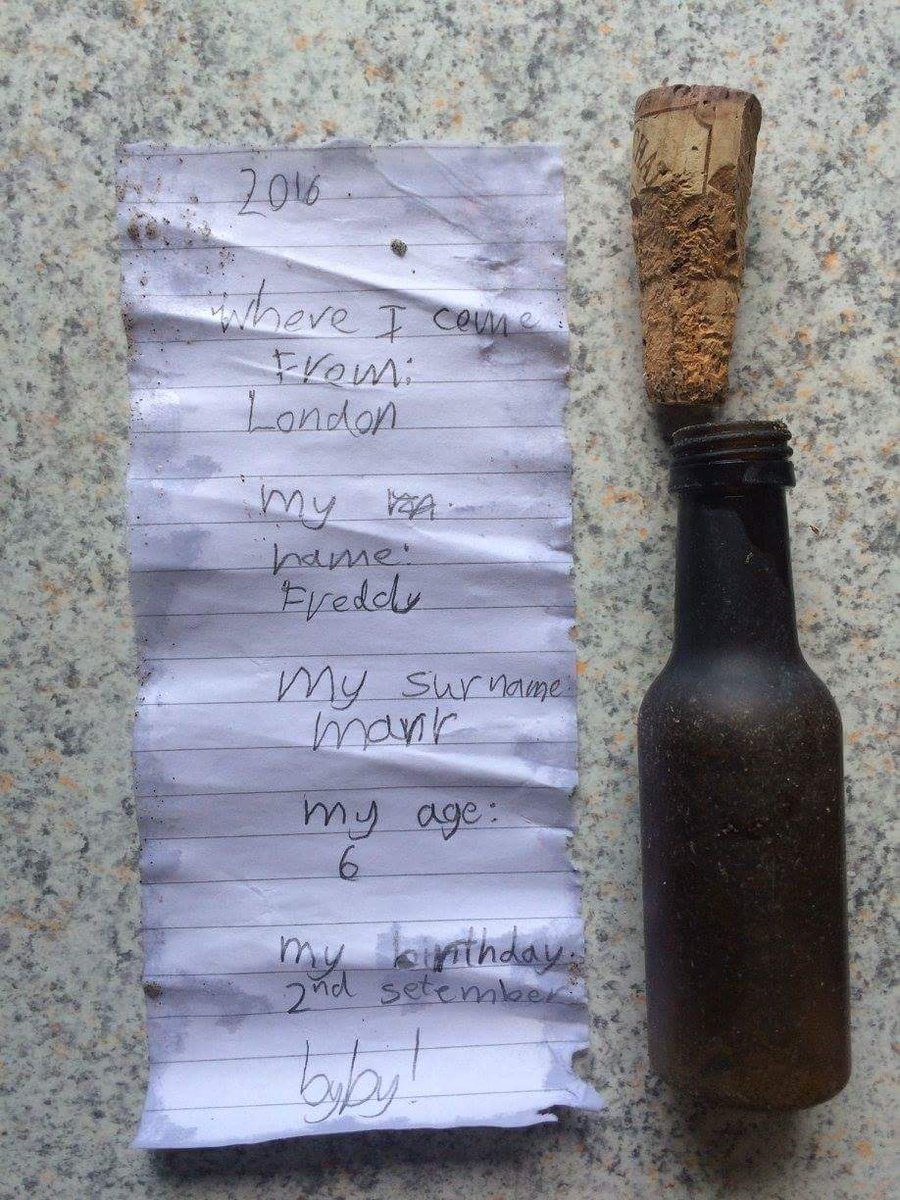 2016
where I come
From:
London
my
name:
Freddy
My surname
manr
my age:
6
my birthday:
2nd setember
byby!